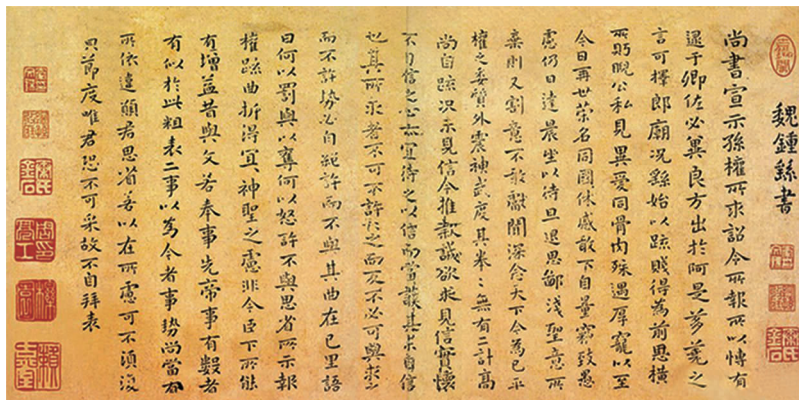 魏鍾繇書
尚書宣示孫權所求詔令所報所以博有
逮于卿佐必冀良方出於阿是芻蕘之
言可擇郎廟況繇始以疏賤得為前恩橫
所眄睨公私見異愛同骨肉殊遇厚寵以至
今日再世榮名同國休慼敢不自量竊致愚
慮仍日達晨坐以待旦退思鄙淺聖意所
棄則又割意不敢獻聞深念天下今為已平
權之委質外震神武度其拳〻無有二計高
尚自疏況未見信今推款誠欲求見信實懷
不自信之心亦宜待之以信而當護其未自信
也其所求者不可不許許之而反不必可與求之
而不許勢必自絕許而不與其曲在己里語
曰何以罰與以奪何以怒許不與思省所示報
權疏曲折得宜〻神聖之慮非今臣下所能
有增益昔與文若奉事先帝事有數者
有似於此粗表二事以為今者事勢尚當有
所依違願君思省若以在所慮可不須復
㒵節度唯君恐不可采故不自拜表